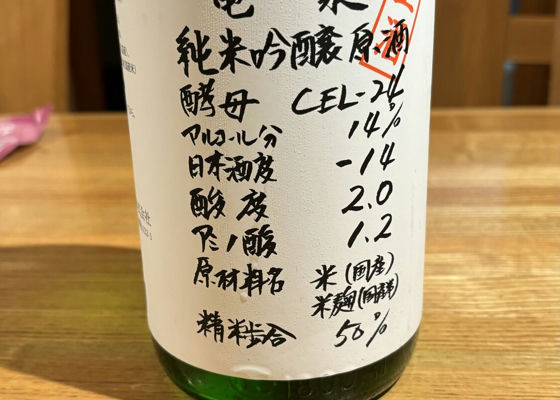 亀泉
純米吟醸原酒
酵母 CEL-24
アルコール分 14%
日本酒度 -14
酸度 2.0
アミノ酸 1.2
原材料名 米(国産)
米麹(国産米)
精米歩合 50%